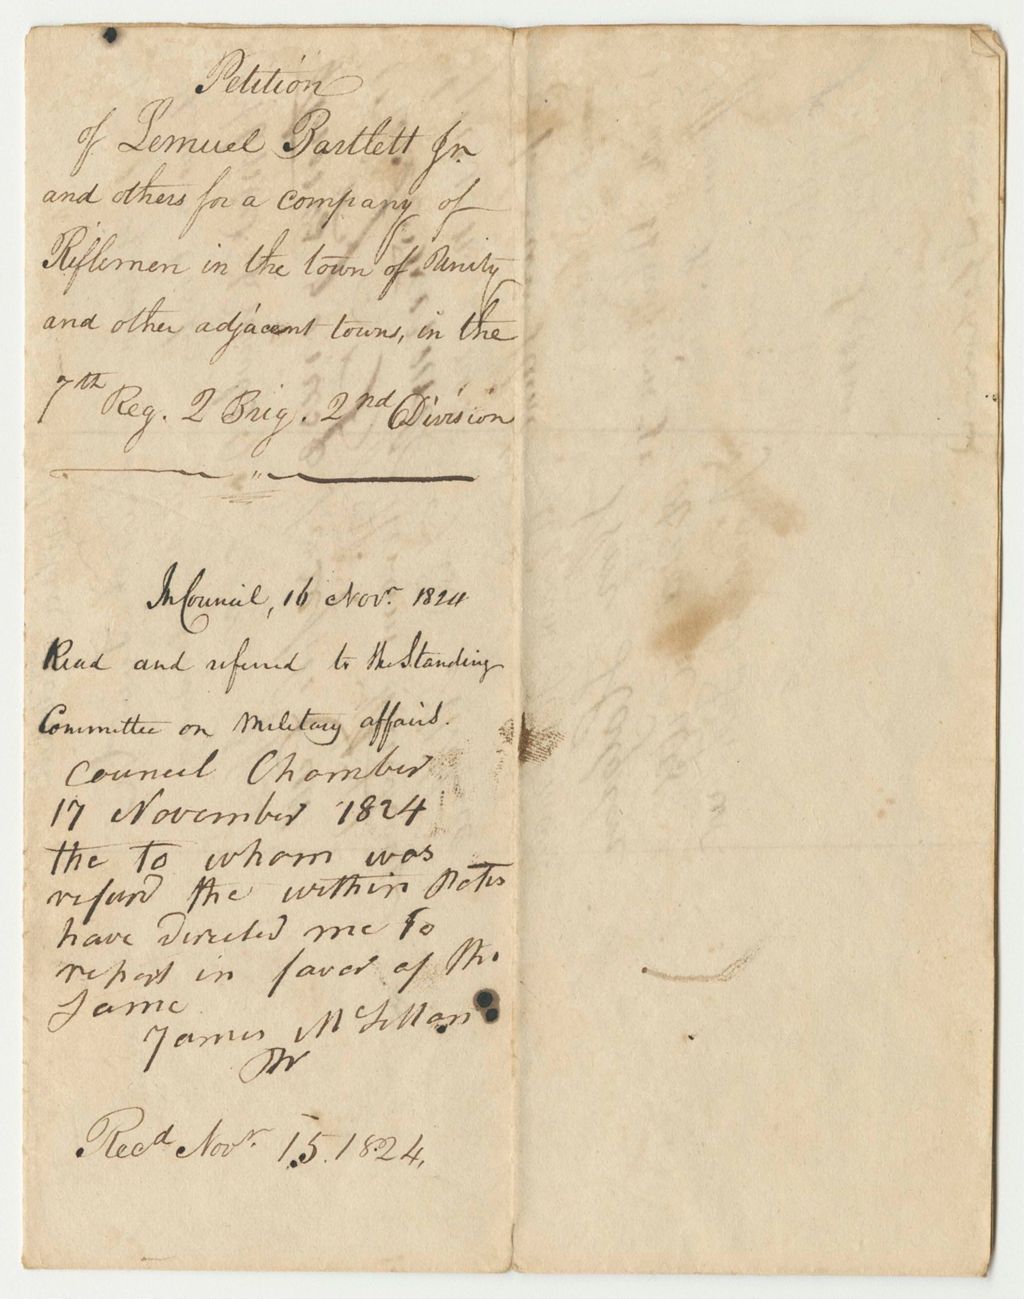 Petition
of Lemuel Bartlett Jr.
and others for a company of
Riflemen in the town of Unity
and other adjacent towns, in the
7th Reg. 2 Brig. 2nd Division
In Council, 16 Novr. 1824
Read and referred to the Standing
Committee on Military affairs.
Council Chamber
17 November 1824
the to whom was
refurd the within
have directed me to
report in favor of the
Same
James
Recd Novr 15. 1824.